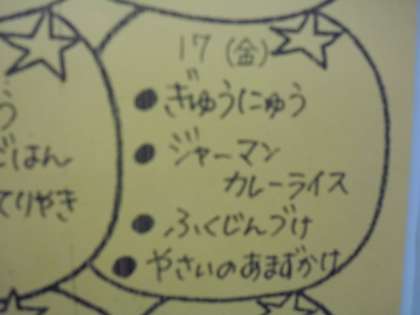 17 (金)
● ぎゅうにゅう
● ジャーマン
カレーライス
● ふくじんづけ
● やさいのあまずかけ
う
ごはん
てりやき